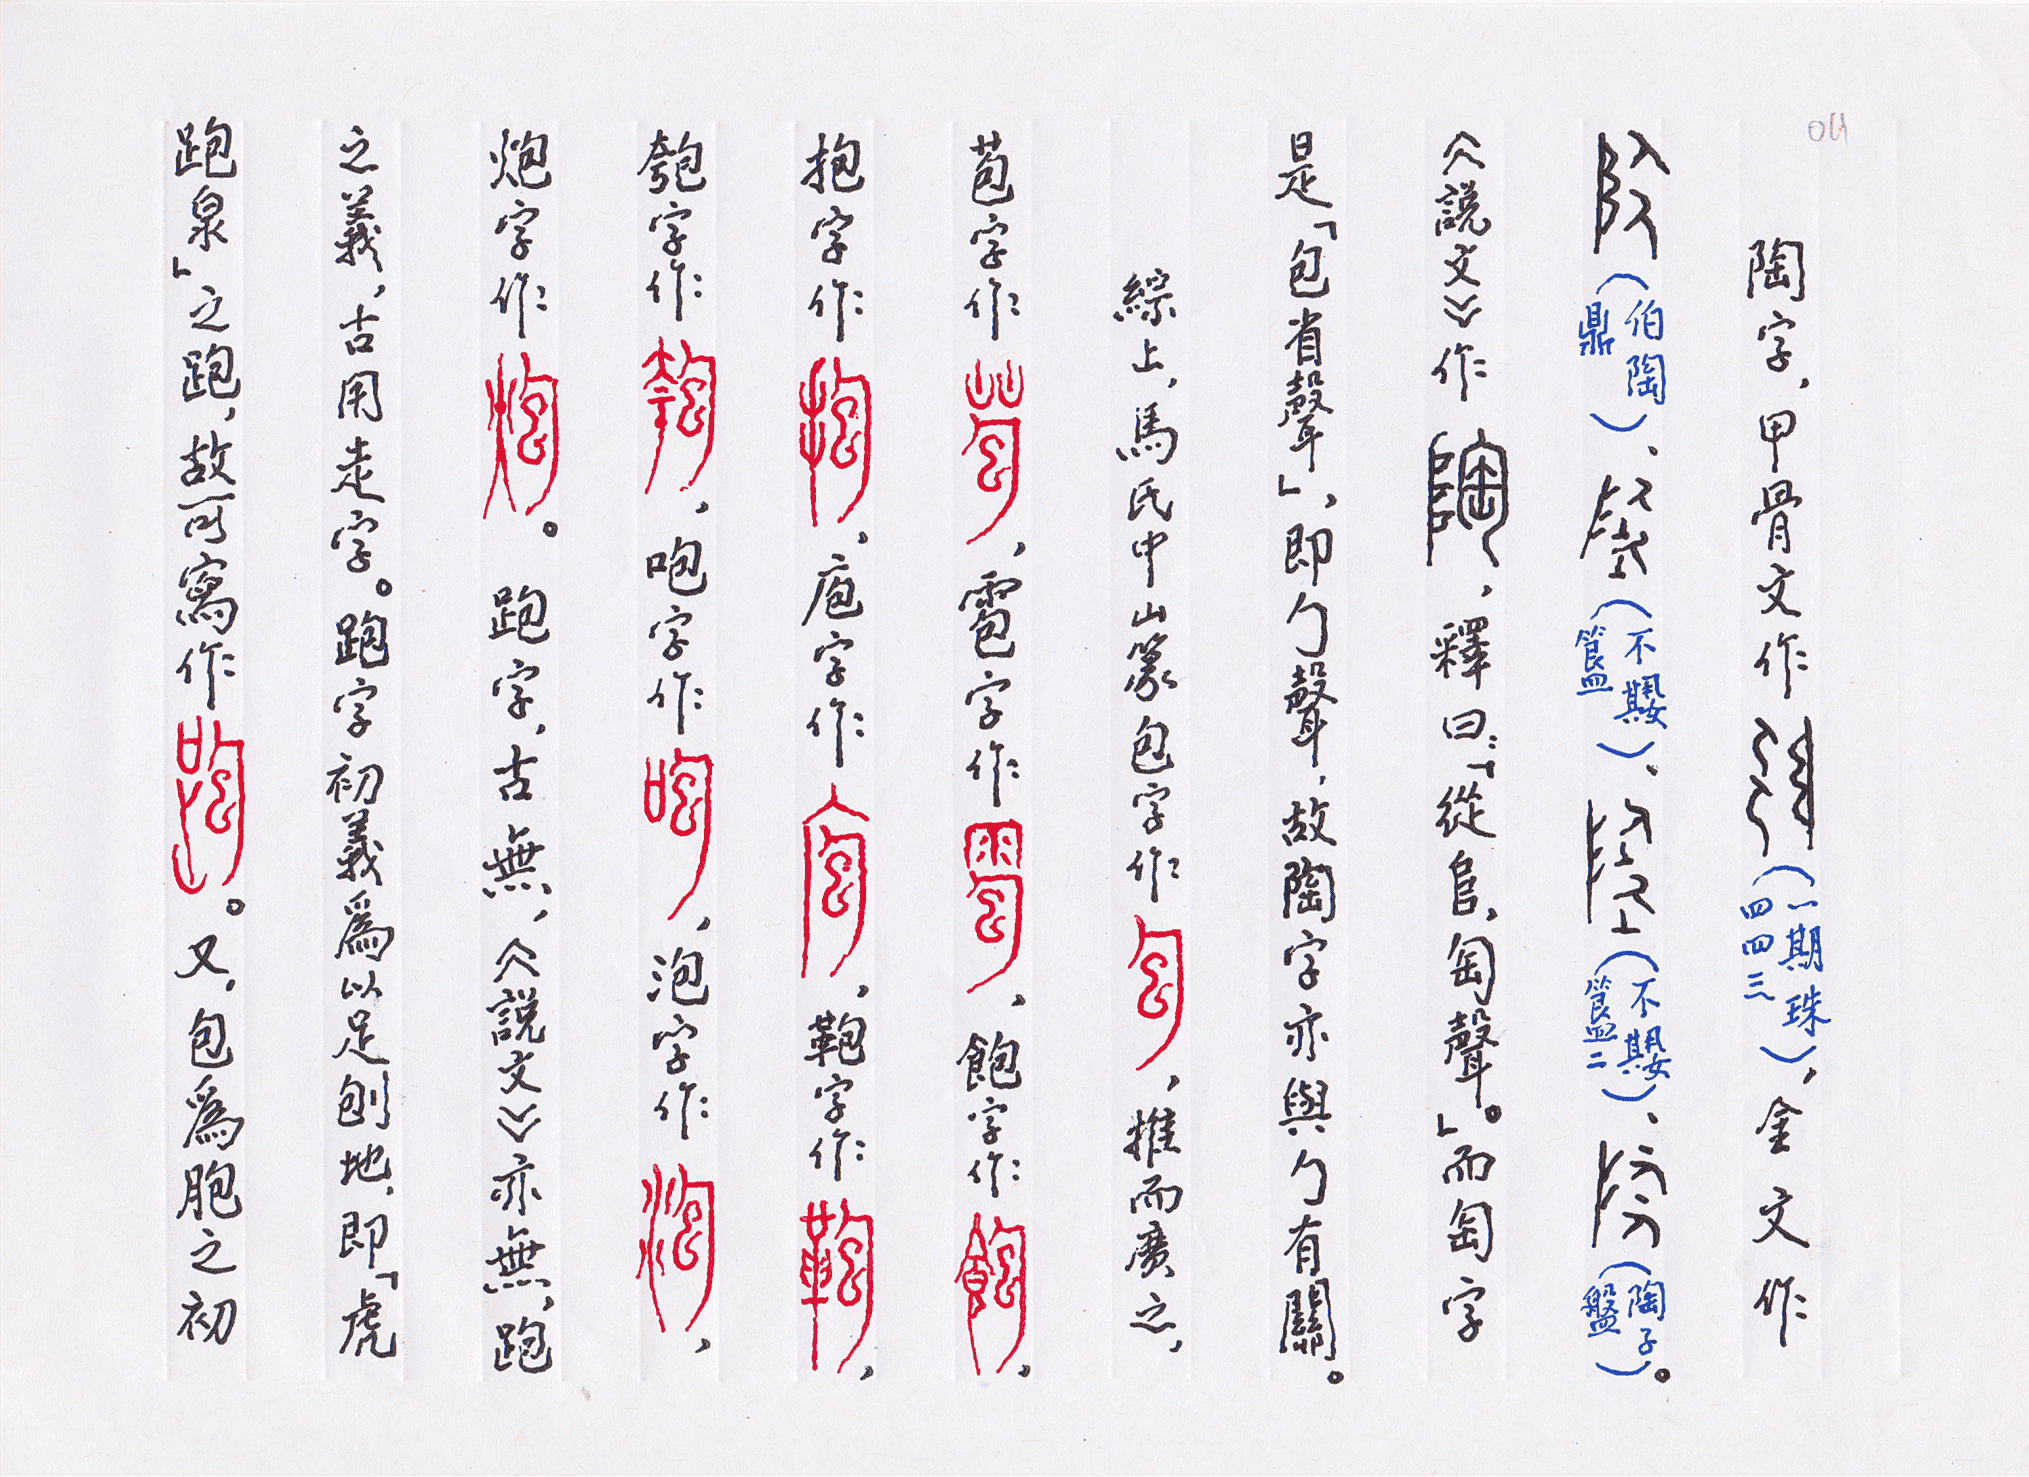 陶字，甲骨文作（一期珠四四三），金文作
（伯陶鼎）、（不𡢁簋）、（不𡢁簋二）、（陶子盤）。
《説文》作，釋曰：「從𨸏，匋聲。」而匋字
是「包省聲」，即勹聲，故陶字亦與勹有關。
綜上，馬氏中山篆包字作，推而廣之，
苞字作，雹字作，飽字作，
抱字作，庖字作，鞄字作，
匏字作，咆字作，泡字作，
炮字作。跑字，古無，《説文》亦無，跑
之義，古用走字。跑字初義爲以足刨地，即「虎
跑泉」之跑，故可寫作。又，包爲胞之初